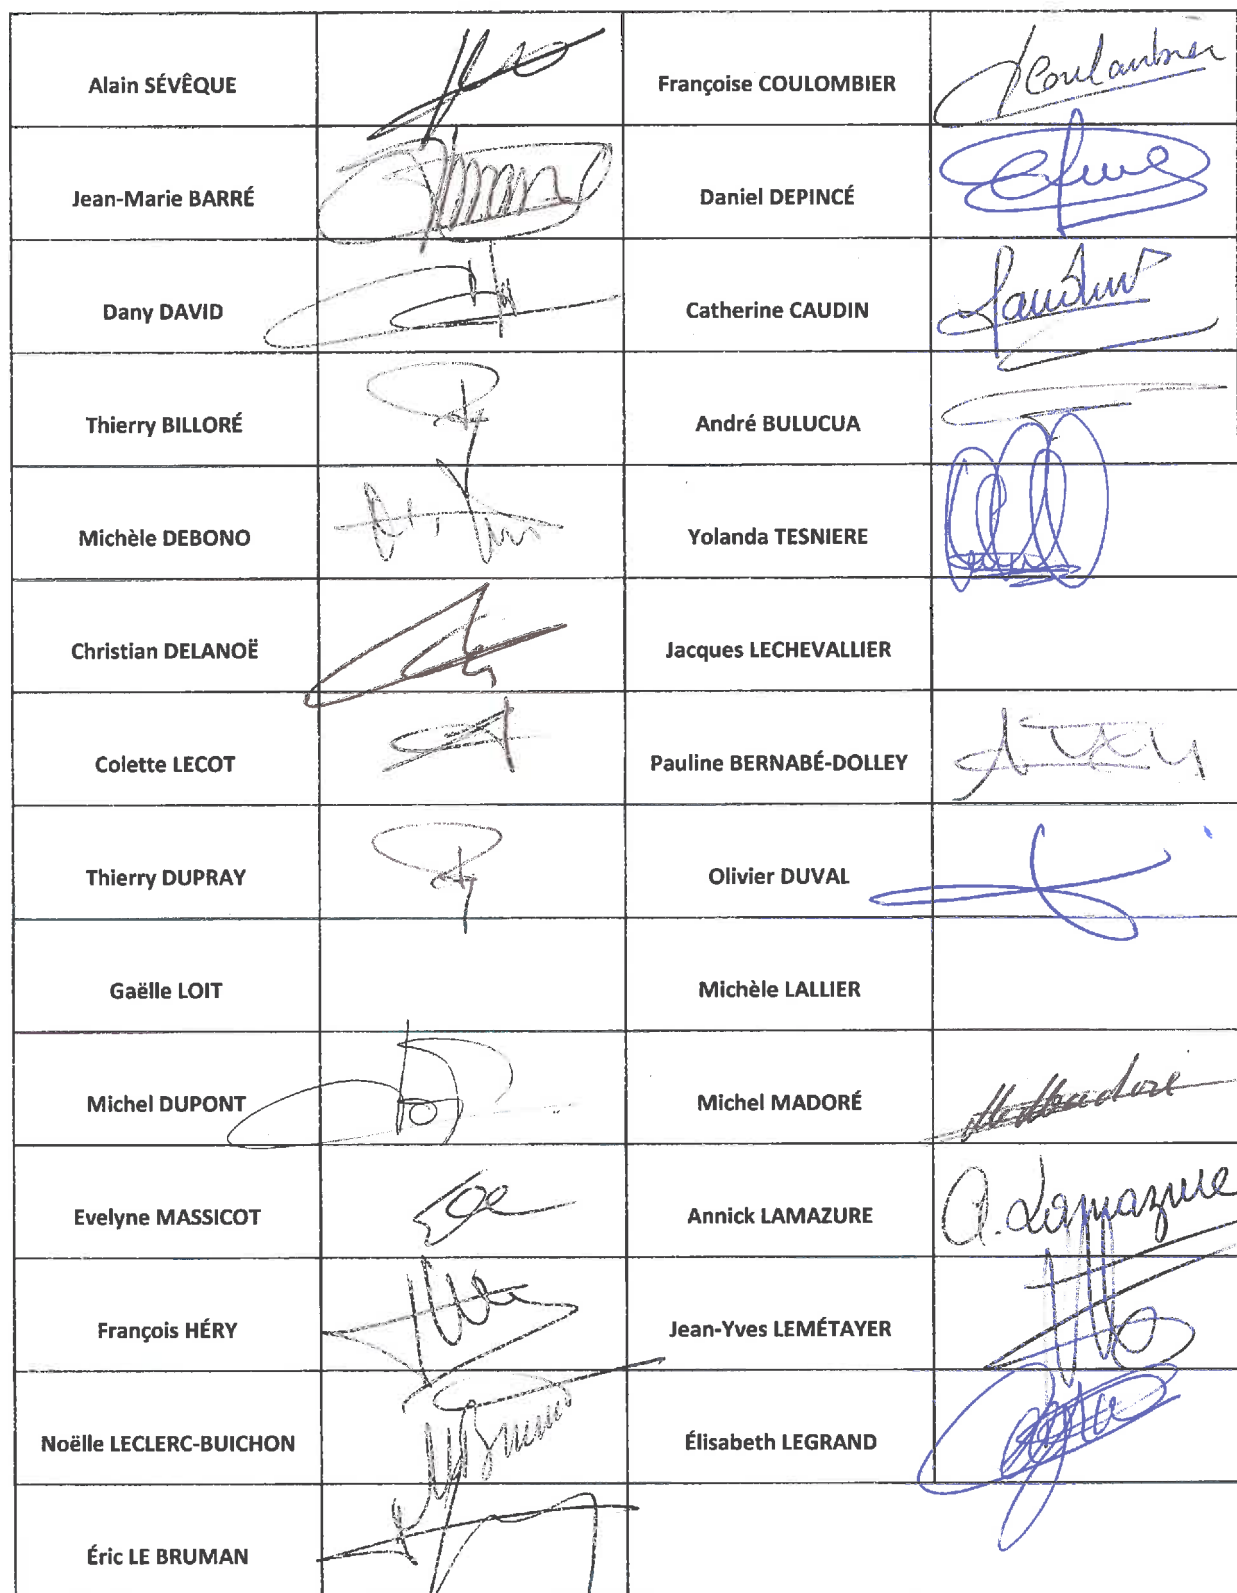 Alain SÉVÊQUE
Françoise COULOMBIER
Coulombier
Jean-Marie BARRÉ
Daniel DEPINCÉ
Dany DAVID
Catherine CAUDIN
Caudin
Thierry BILLORÉ
André BULUCUA
Michèle DEBONO
Yolanda TESNIERE
Christian DELANOË
Jacques LECHEVALLIER
Colette LECOT
Pauline BERNABÉ-DOLLEY
Thierry DUPRAY
Olivier DUVAL
Gaëlle LOIT
Michèle LALLIER
Michel DUPONT
Michel MADORÉ
Evelyne MASSICOT
Annick LAMAZURE
a. Lamazure
François HÉRY
Jean-Yves LEMÉTAYER
Noëlle LECLERC-BUICHON
Élisabeth LEGRAND
Éric LE BRUMAN